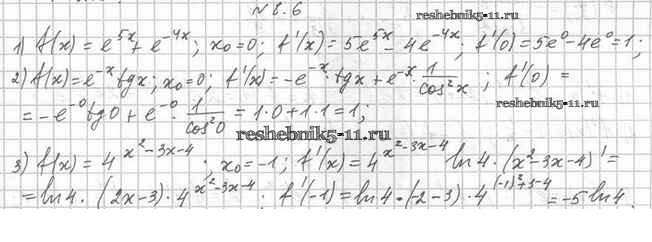 №8.6
reshebnik5-11.ru
1) f(x) = e^{5x} + e^{-4x}; x₀=0; f'(x) = 5e^{5x} - 4e^{-4x}; f'(0) = 5e⁰ - 4e⁰ = 1;
2) f(x) = e^{-x} tgx; x₀=0; f'(x) = -e^{-x} · tgx + e^{-x} · \frac{1}{cos²x}; f'(0) =
reshebnik5-11.ru
= -e^{-0} tg0 + e^{-0} · \frac{1}{cos²0} = 1·0 + 1·1 = 1;
reshebnik5-11.ru
3) f(x) = 4^{x²-3x-4}; x₀=-1; f'(x) = 4^{x²-3x-4} ln4 · (x²-3x-4)' =
= ln4 · (2x-3) · 4^{x²-3x-4}; f'(-1) = ln4 · (-2-3) · 4^{(-1)²+3-4} = -5 ln4.